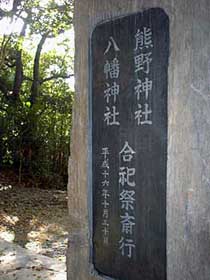 熊野神社 合祀祭斎行
八幡神社
平成十六年十月三十日